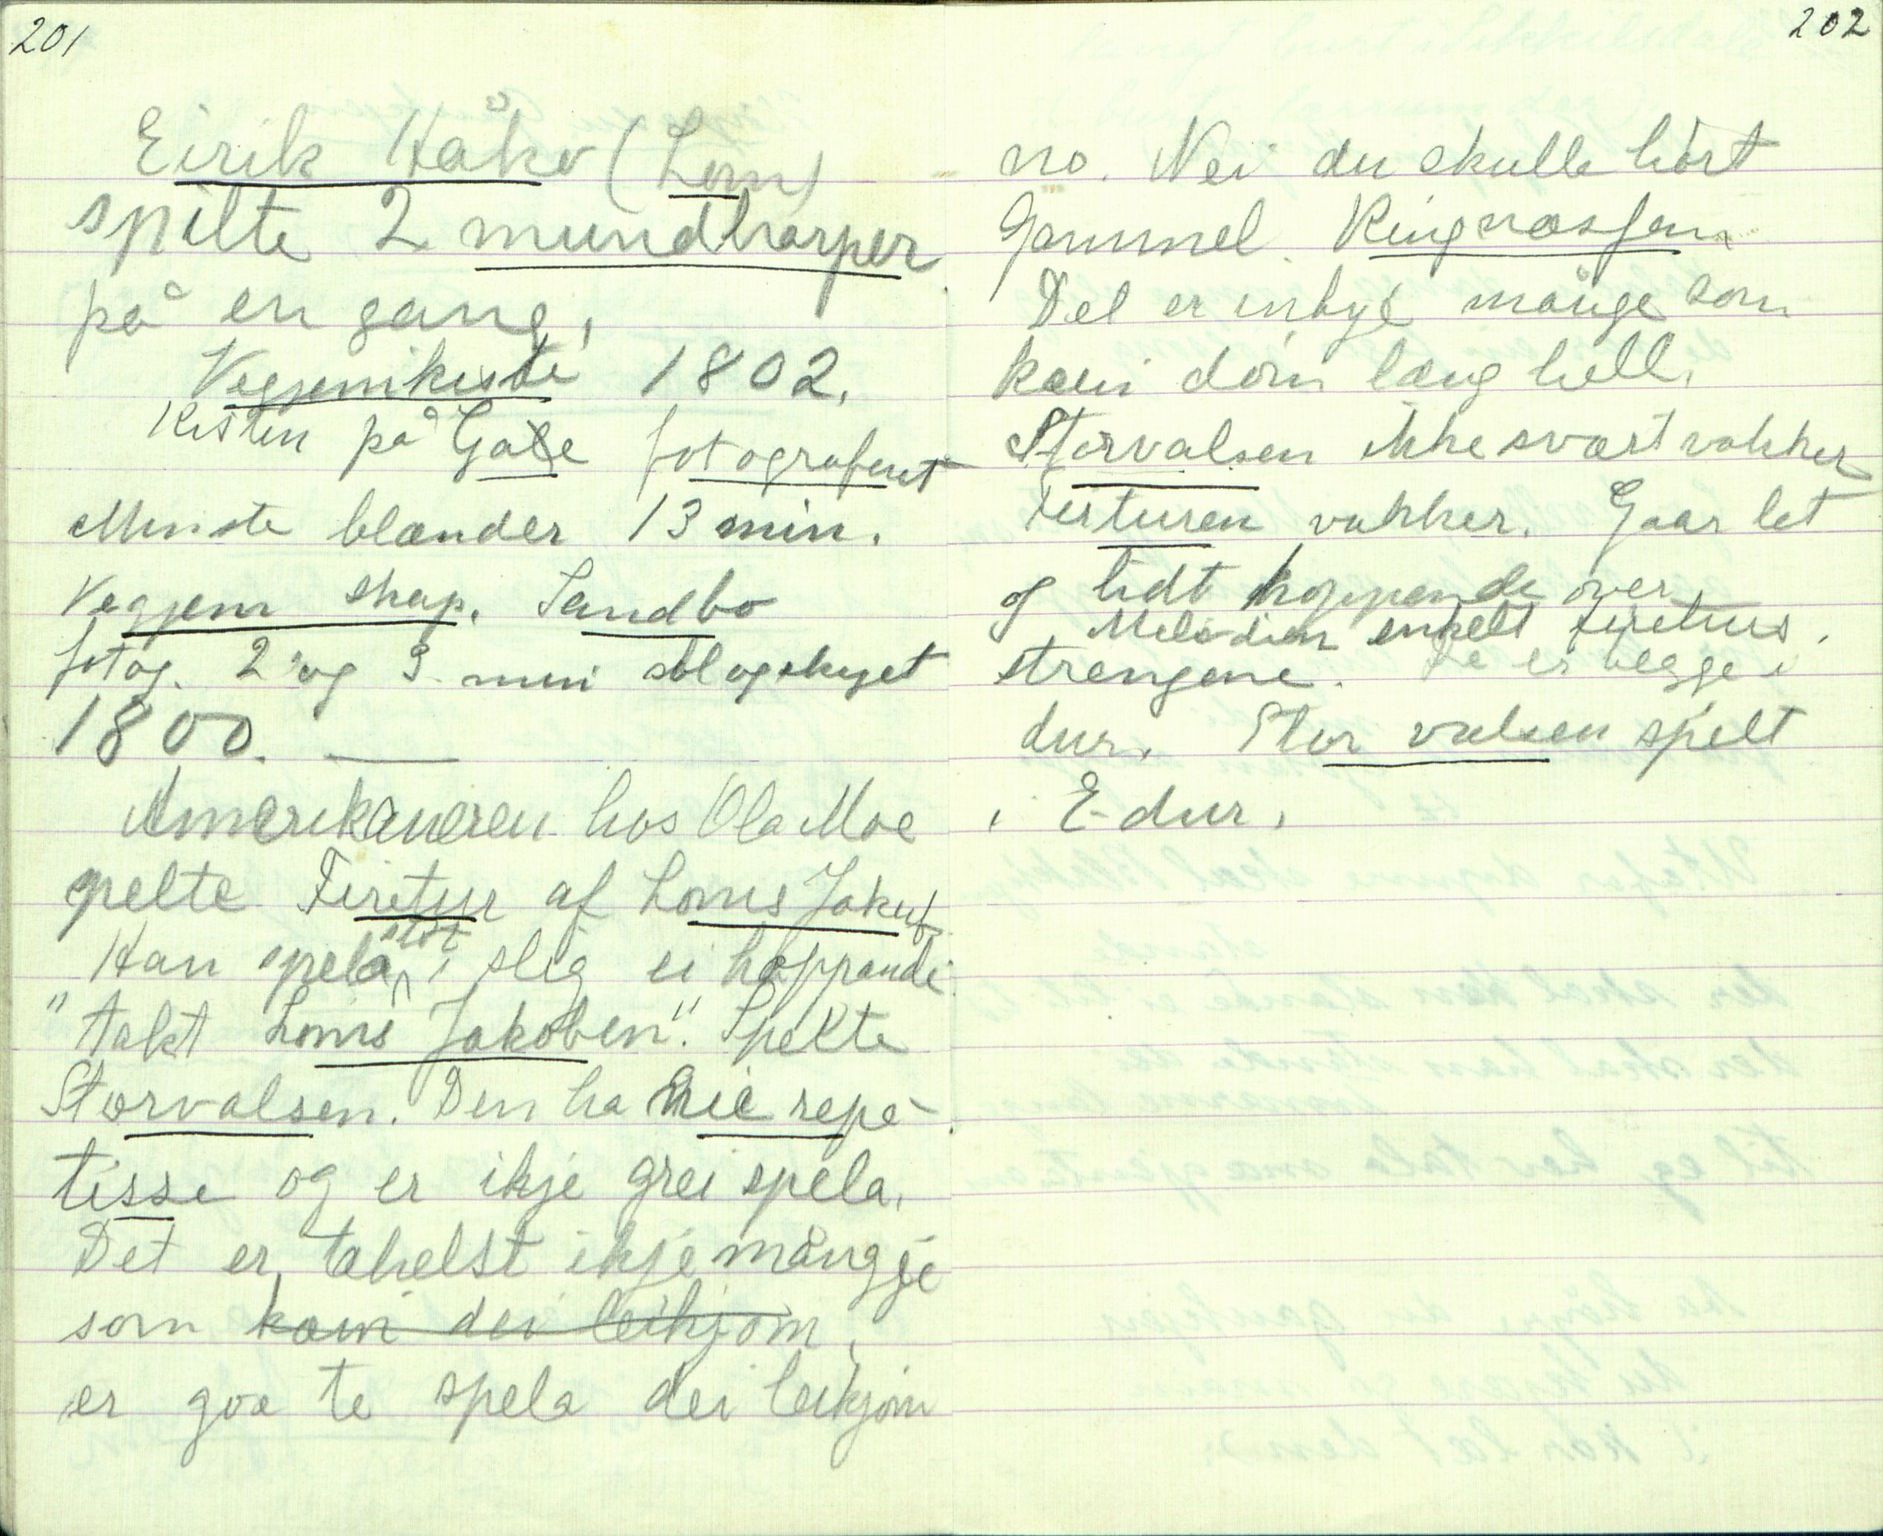 201
Eirik Håkø (Lom)
spilte 2 mundharper
på en gang,
Veggemkiste 1802.
Kisten på Gale fotograferet
Minste blænder 13 min.
Veggem skap. Sandbo
fotog. 2 og 3 min sol og skyet
1800. —
Amerikaneren hos Ola Moe
spelte Firetur af Loms Jakup
Han spela støt i slig ei hoppandi
"takt Loms Jakoben". Spelte
Storvalsen. Den ha nie repe-
tisse og er ikje grei spela.
Det er, tahelst ikje mångje
som kain dei leikjom,
er goe te spela dei leikjom
202
no. Nei du skulle hört
Gammel Ringnæsjen
Det er inkje månge som
kain dom læng hell.
Storvalsen ikke svært vakker
Firturen vakker. Gaar let
og lidt hoppende over
Melodien enkelt fireturs.
strengene. De er begge i
dur. Stor valsen spelt
i E-dur.